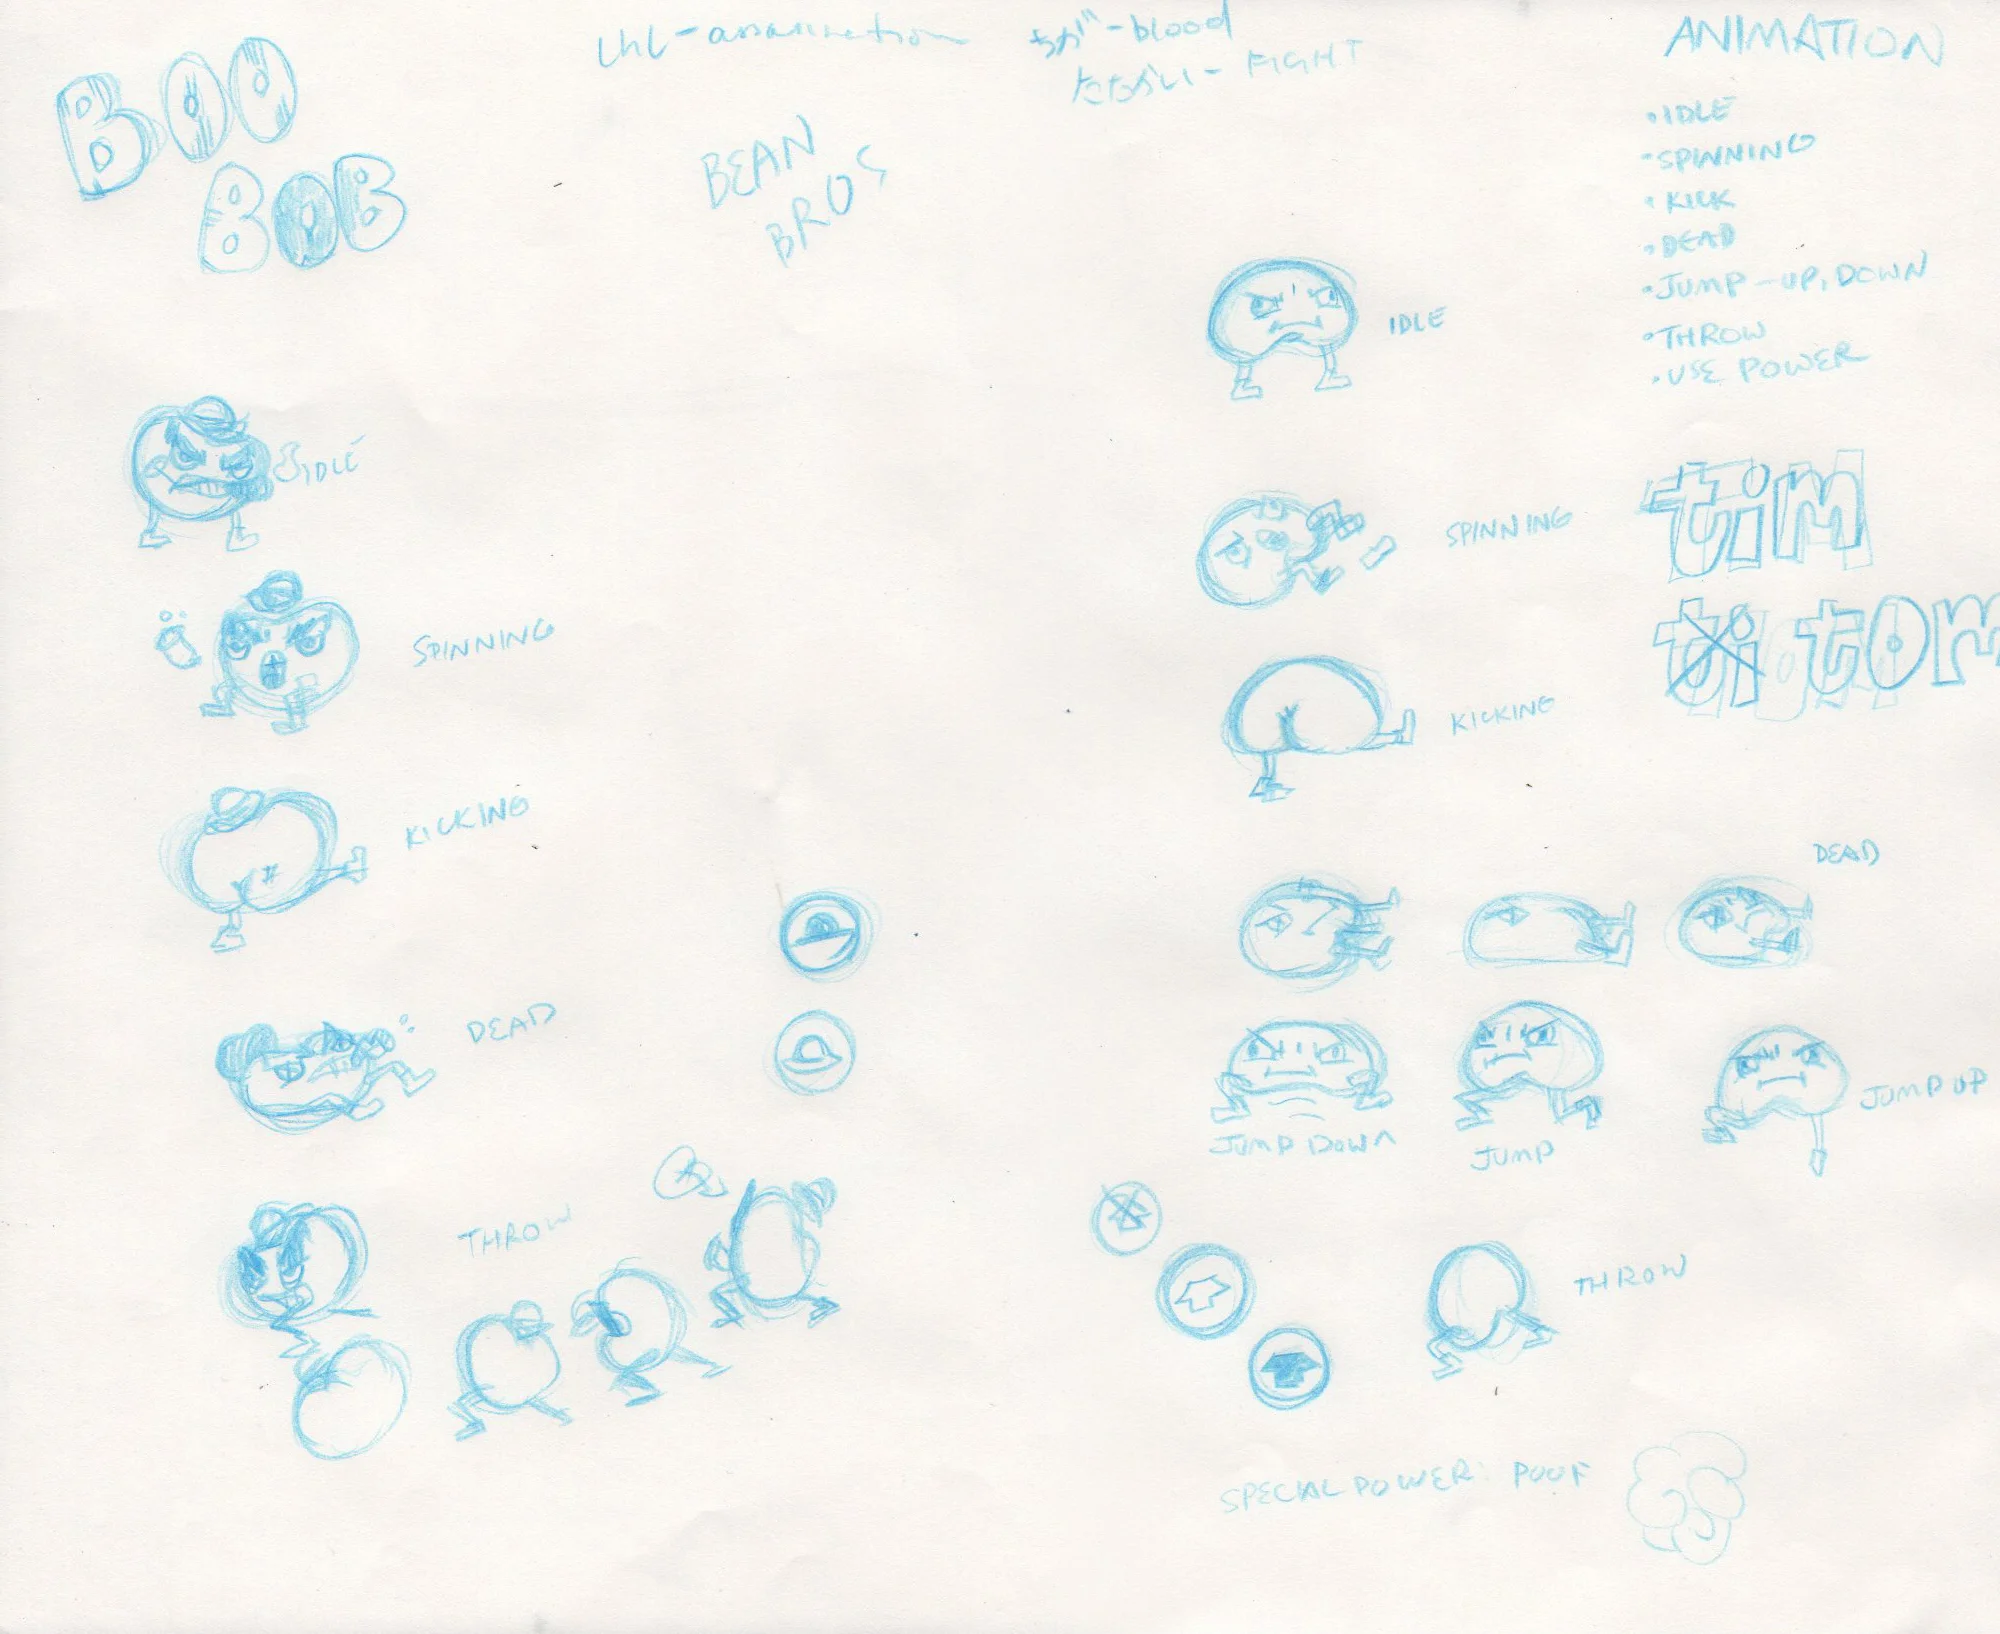 BOO
BOB
ちが - blood
たたかい - FIGHT
BEAN
BROS
ANIMATION
• IDLE
• SPINNING
• KICK
• DEAD
• JUMP - UP, DOWN
• THROW
• USE POWER
IDLE
SPINNING
KICKING
DEAD
THROW
IDLE
SPINNING
KICKING
DEAD
JUMP DOWN
JUMP
JUMP UP
THROW
SPECIAL POWER: POOF
tim
tom